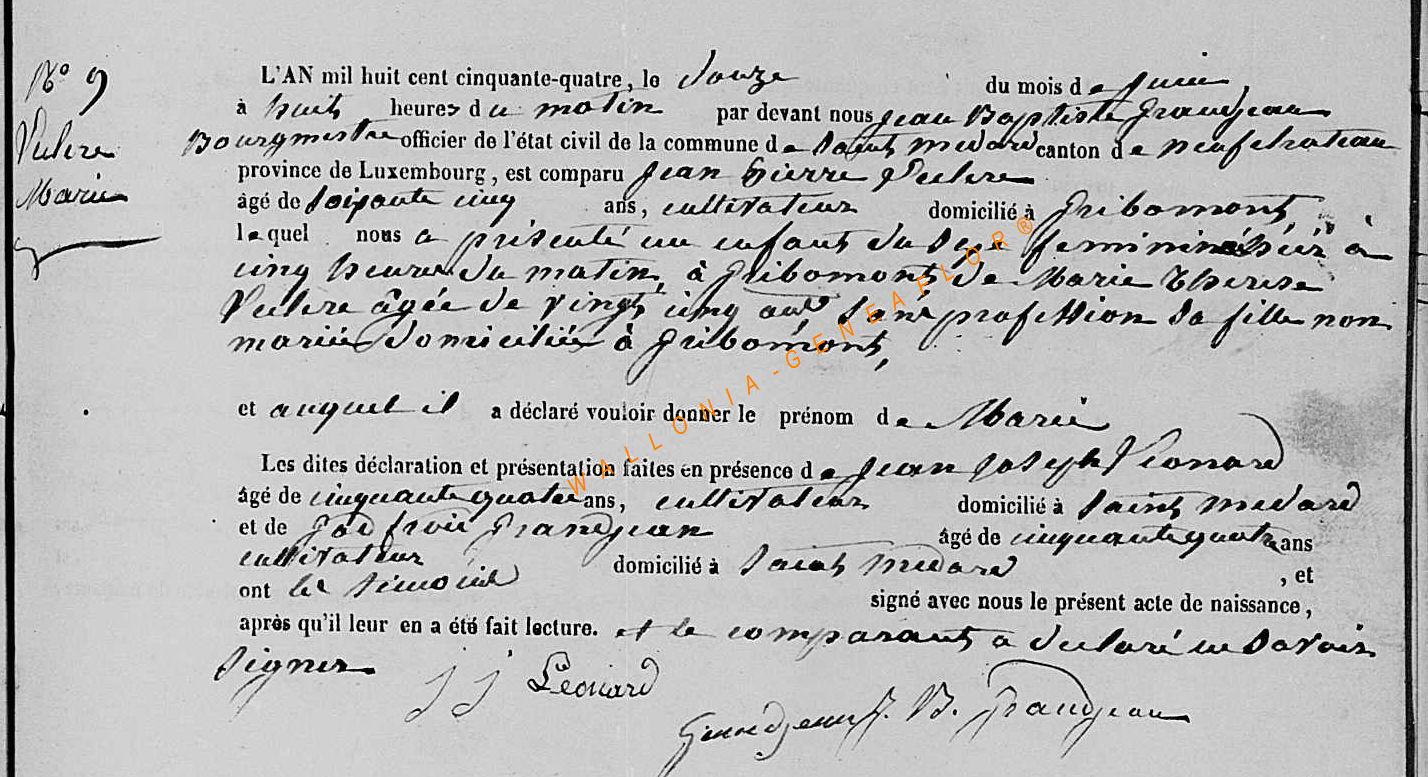 N° 9
Pulere
Marie
L'AN mil huit cent cinquante-quatre, le douze du mois de Juin
à huit heures du matin par devant nous Jean Baptiste Grandjean
Bourgmestre officier de l'état civil de la commune de Saint Medard canton de neufchateau
province de Luxembourg, est comparu Jean Pierre
âgé de soixante cinq ans, cultivateur domicilié à Gribomont
lequel nous a présenté un enfant du sexe feminin à
cinq heures du matin, à Gribomont, de Marie Therese
âgée de vingt cinq ans sans profession sa fille non
mariée domiciliée à Gribomont,
et auquel il a déclaré vouloir donner le prénom de Marie
Les dites déclaration et présentation faites en présence de Jean Joseph Léonard
âgé de cinquante quatre ans, cultivateur domicilié à Saint Medard
et de Godfroid Grandjean âgé de cinquante quatre ans
cultivateur domicilié à Saint Medard , et
ont les témoins signé avec nous le présent acte de naissance,
après qu'il leur en a été fait lecture. et le comparant a declaré ne savoir
signer
J J Léonard
Grandjean J. B. Grandjean
WALLONIA-GENEAFLOR®